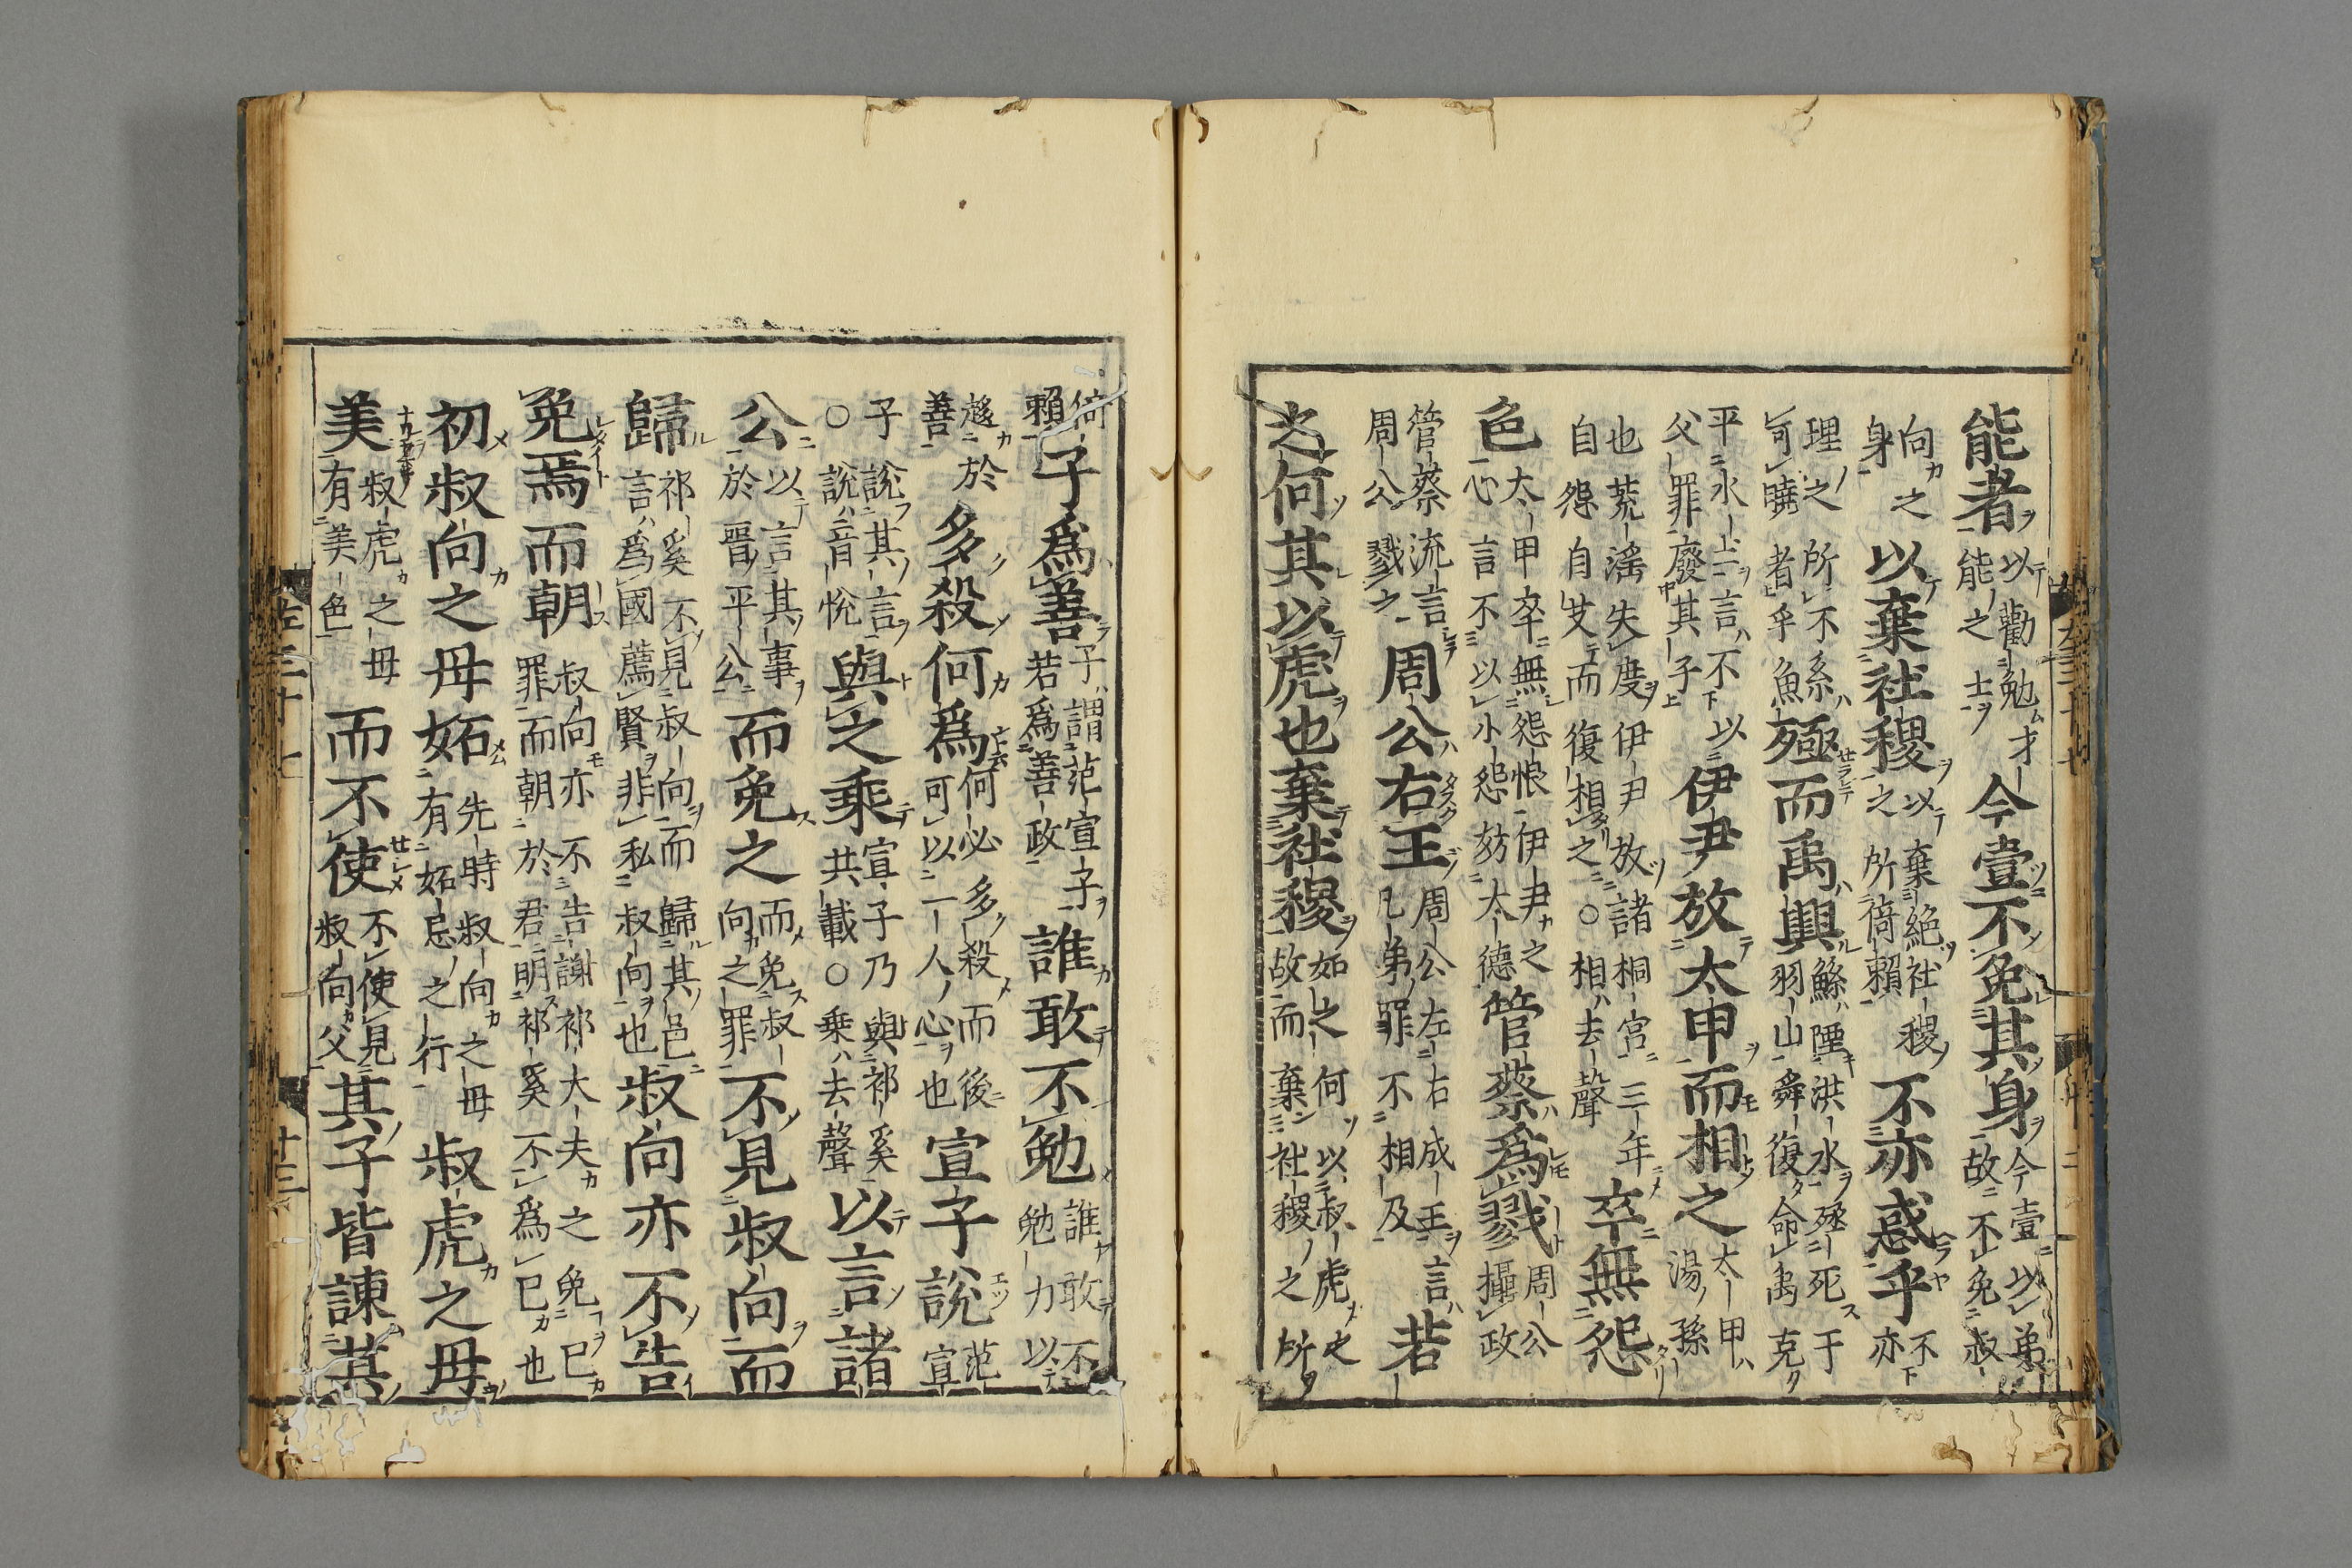 能者以勸勉才能之士今壹不免其身今壹以弟故不免叔
向之身以棄社稷之以棄絕社稷之所倚頼不亦惑乎不亦
理之可曉者乎所不系鯀殛而禹興鯀陻洪水殛死于羽山舜復命禹克
平水土言不以父罪廢其子伊尹放太甲而相之太甲湯孫
也荒滛失度伊尹放諸桐宮三年自怨自艾而復相之○相去聲卒無怨
色太甲卒無怨恨伊尹之心言不以小怨妨大德管蔡爲戮周公攝政
管蔡流言周公戮之周公右王周公左右成王言凡弟罪不相及若
之何其以虎也棄社稷如之何以叔虎之故而棄社稷之所
倚頼子爲善子謂范宣子若爲善政誰敢不勉誰敢不勉力以
趍於善多殺何爲何必多殺而後可以一人心也宣子說范宣
子說其言○說音悅與之乘宣子乃與祁奚共載○乘去聲以言諸
公以言其事於晋平公而免之而免叔向之罪不見叔向而
歸祁奚不見叔向而歸其邑言爲國薦賢非私叔向也叔向亦不告
免焉而朝叔向亦不告謝祁大夫之免己罪而朝於君明祁奚不爲己也
初叔向之母妬先時叔向之母有妬忌之行叔虎之母
美叔虎之母有美色而不使不使見叔向父其子皆諫其